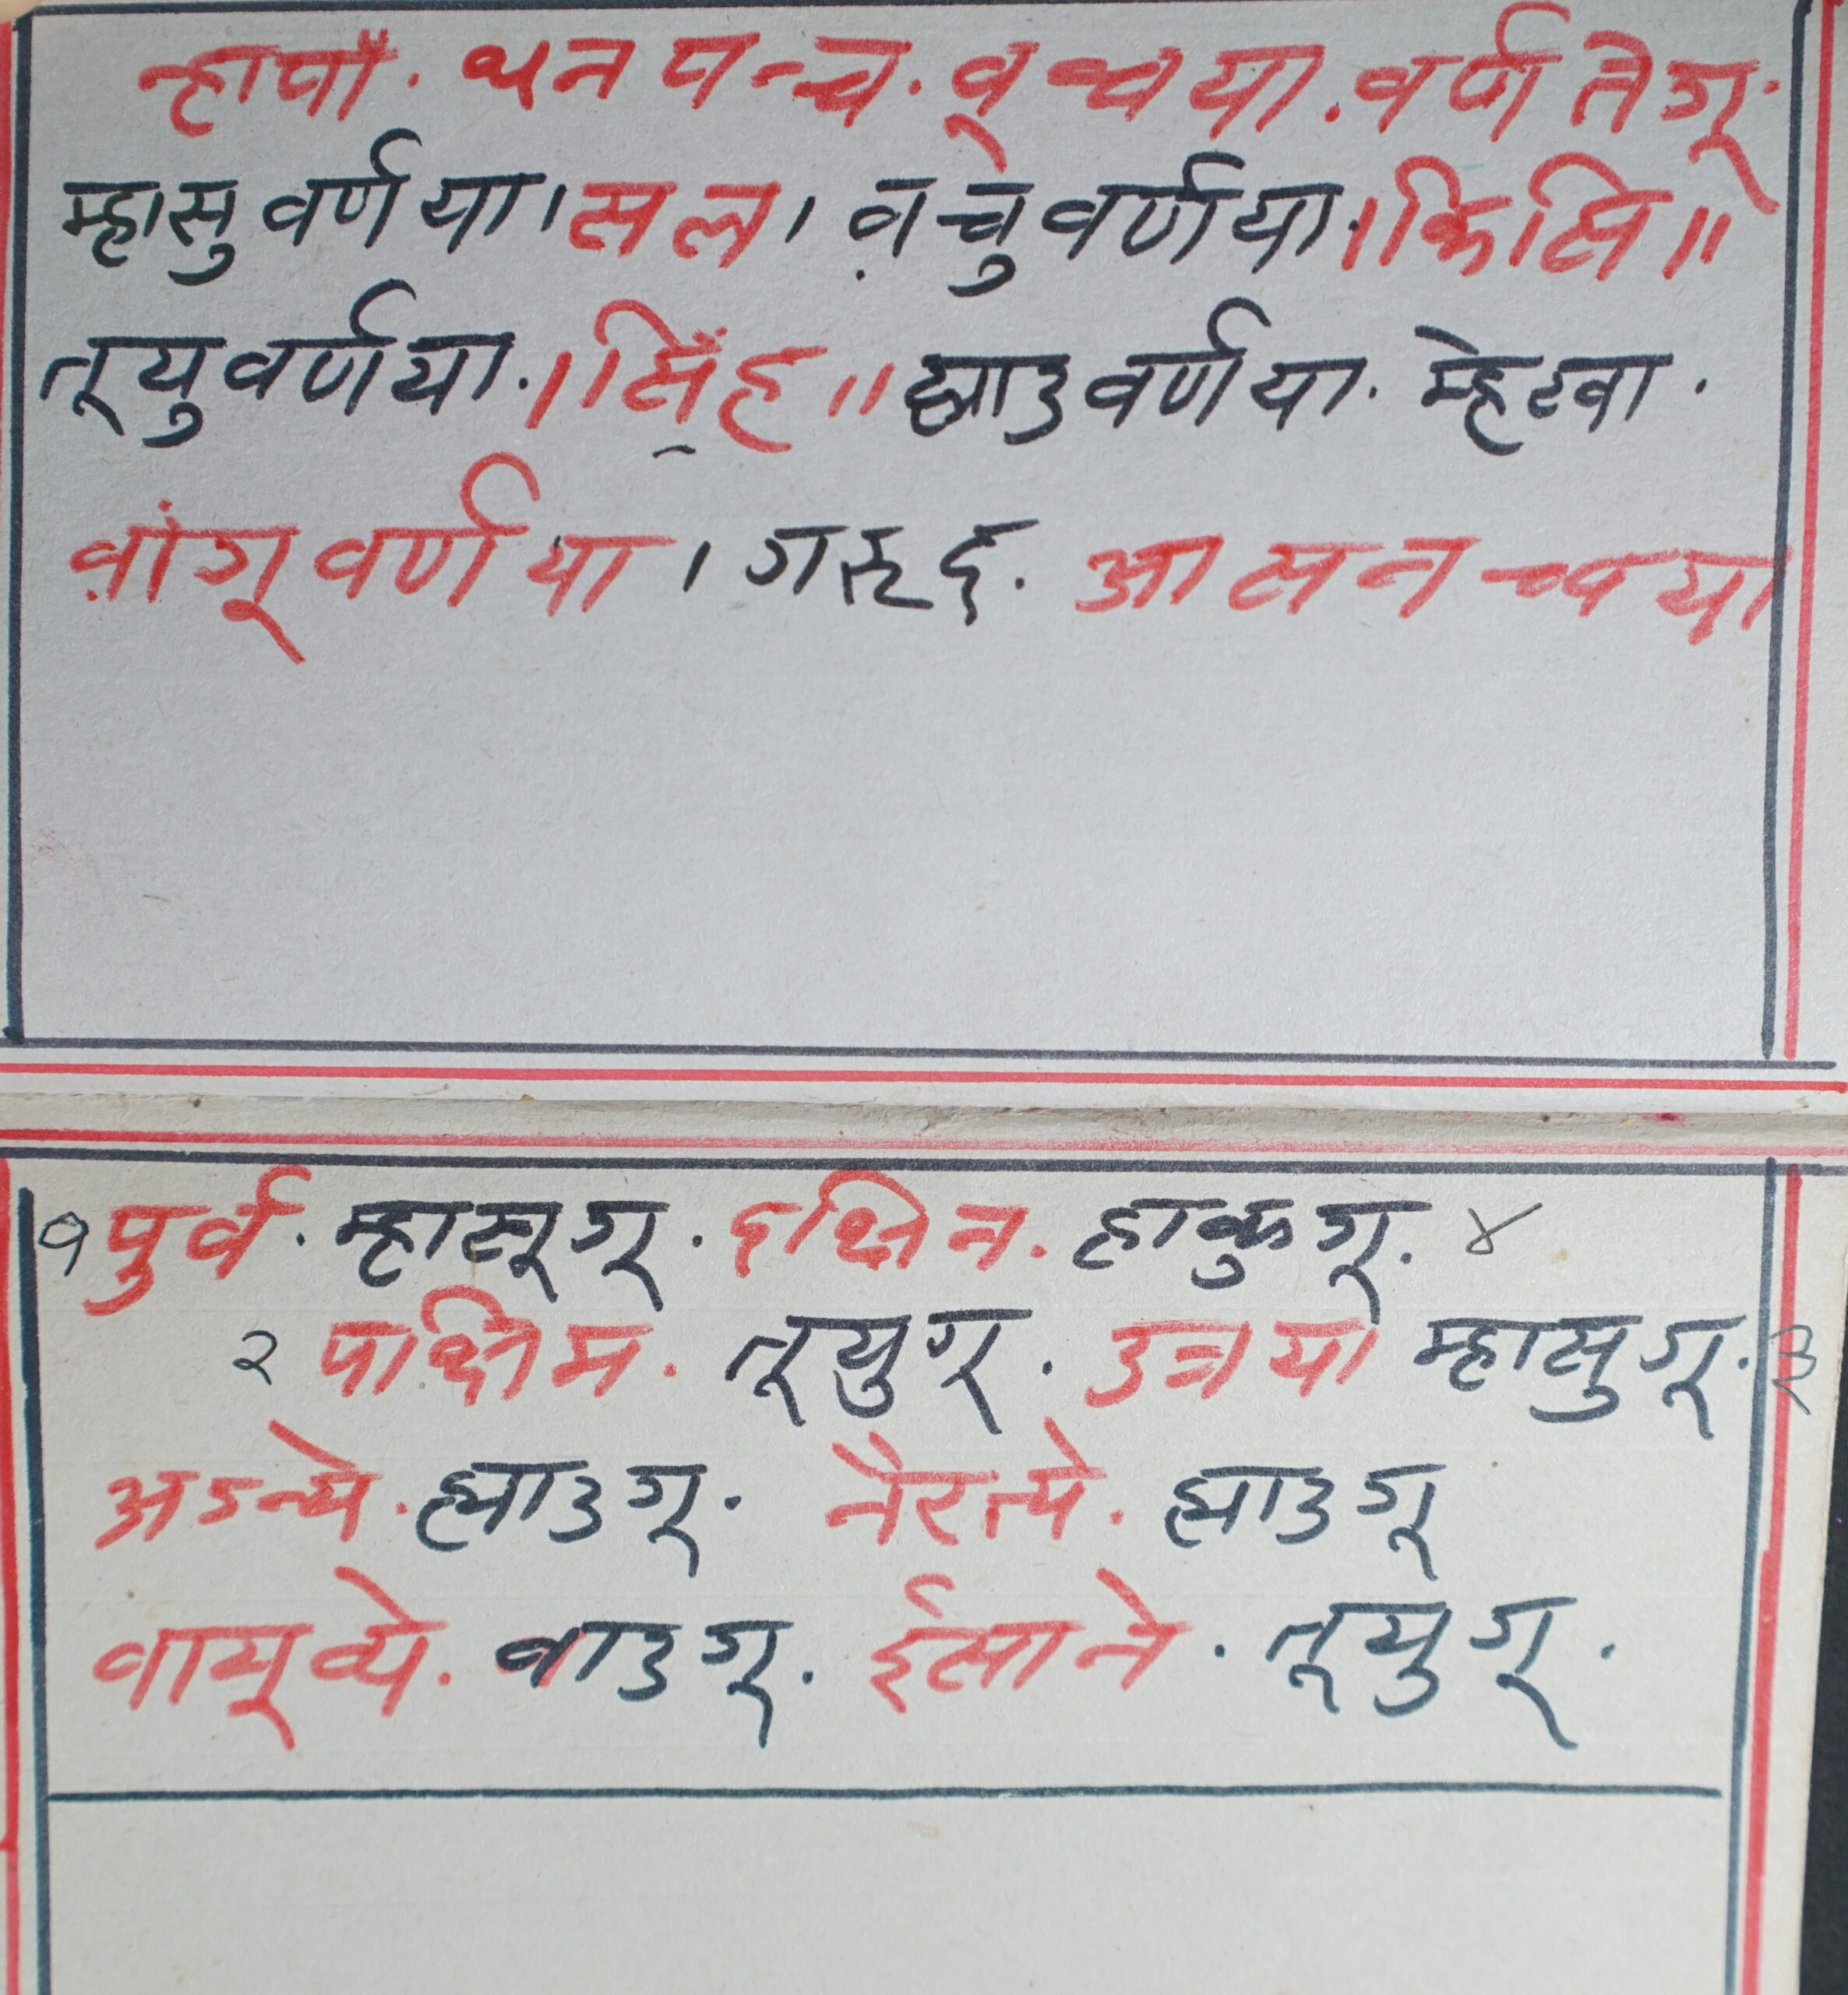 न्हापाँ. थन पन्च. वूध्धया. वर्ण तेगू.
म्हासु वर्णया। सल। व़चुवर्णया.। किसि॥
तूयुवर्णया.। सिंह॥ ह्याउवर्णया. म्हेखा.
व़ांगूवर्णया। गरूद. आसनच्वया
१ पुर्व. म्हासूगू. दक्षिन. हाकुगू. ४
२ पाक्षिम. तूयुगू. उत्रया म्हासुगू. ३
अग्न्ये. ह्याउगू. नैरत्ये. ह्याउगू
वायूव्ये. वाउगू. ईसाने. तूयुगू.